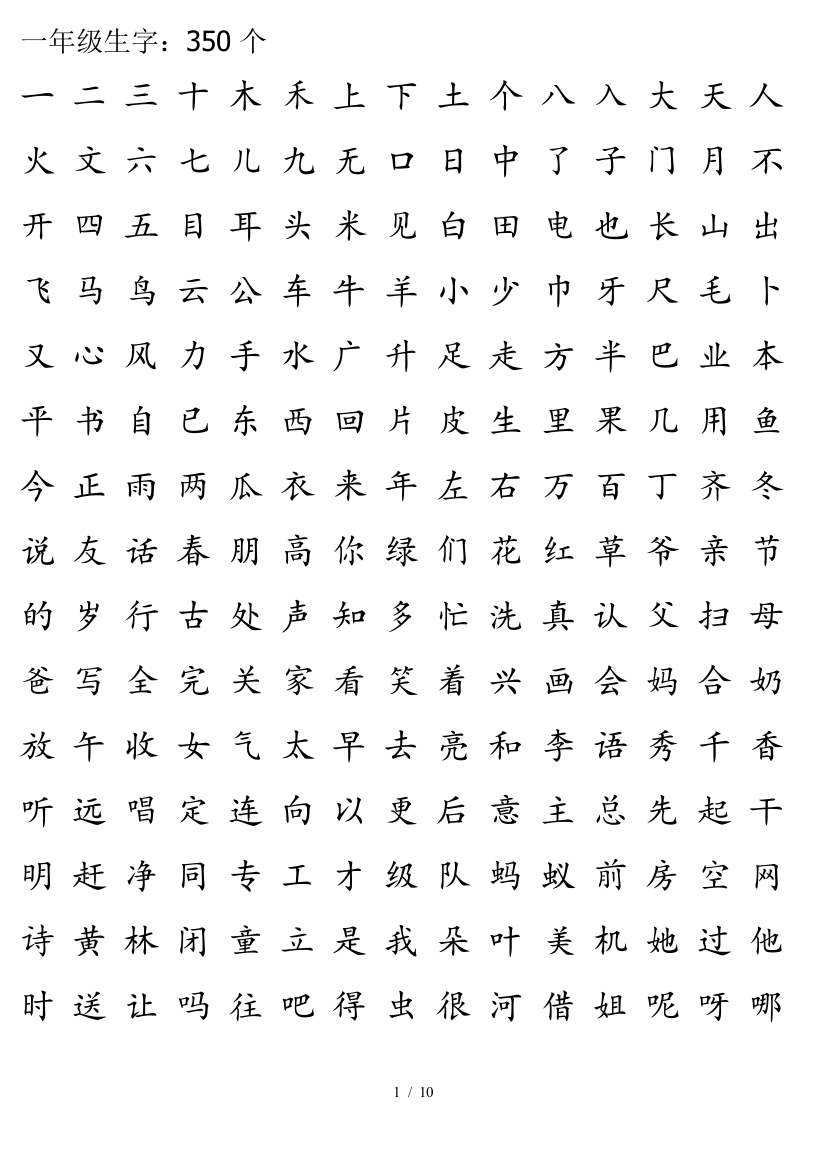 一年级生字：350 个
一 二 三 十 木 禾 上 下 土 个 八 入 大 天 人
火 文 六 七 儿 九 无 口 日 中 了 子 门 月 不
开 四 五 目 耳 头 米 见 白 田 电 也 长 山 出
飞 马 鸟 云 公 车 牛 羊 小 少 巾 牙 尺 毛 卜
又 心 风 力 手 水 广 升 足 走 方 半 巴 业 本
平 书 自 已 东 西 回 片 皮 生 里 果 几 用 鱼
今 正 雨 两 瓜 衣 来 年 左 右 万 百 丁 齐 冬
说 友 话 春 朋 高 你 绿 们 花 红 草 爷 亲 节
的 岁 行 古 处 声 知 多 忙 洗 真 认 父 扫 母
爸 写 全 完 关 家 看 笑 着 兴 画 会 妈 合 奶
放 午 收 女 气 太 早 去 亮 和 李 语 秀 千 香
听 远 唱 定 连 向 以 更 后 意 主 总 先 起 干
明 赶 净 同 专 工 才 级 队 蚂 蚁 前 房 空 网
诗 黄 林 闭 童 立 是 我 朵 叶 美 机 她 过 他
时 送 让 吗 往 吧 得 虫 很 河 借 姐 呢 呀 哪
1 / 10